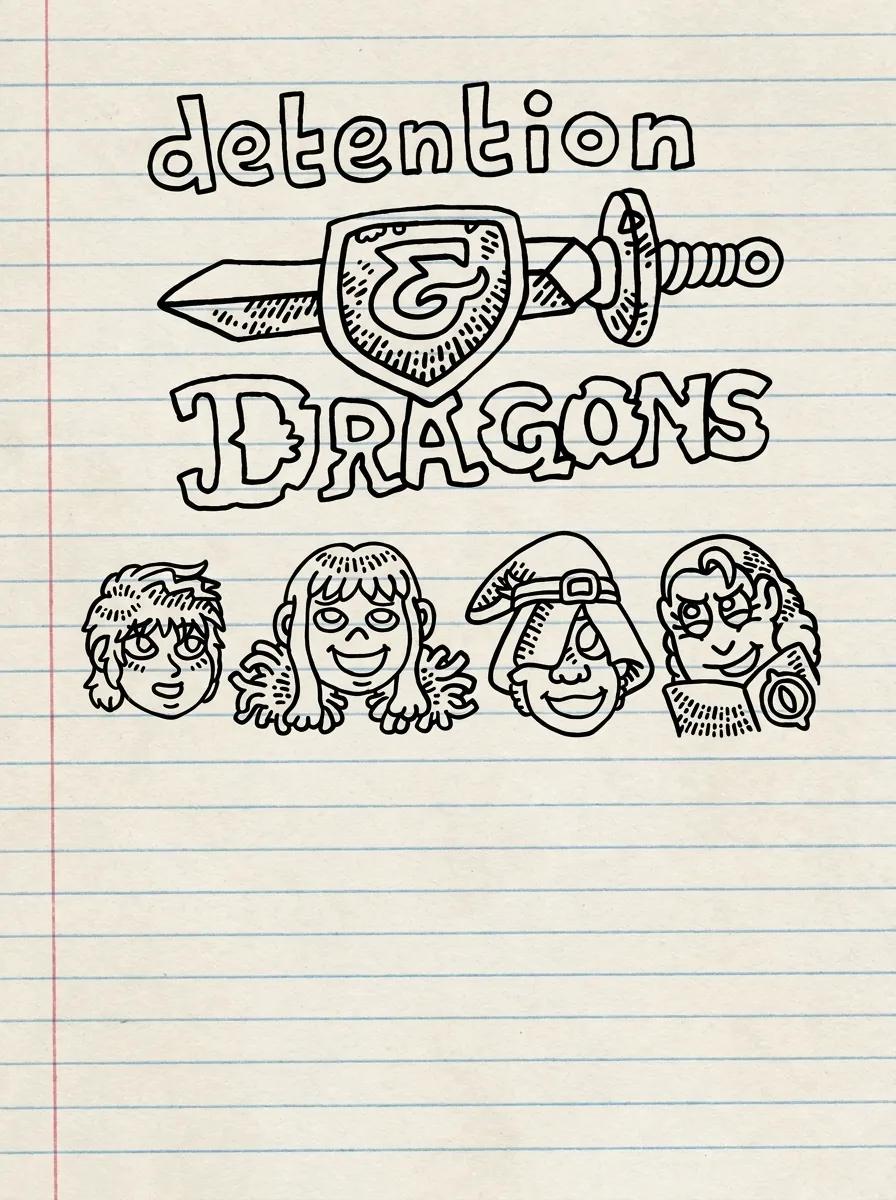 detention
&
DRAGONS